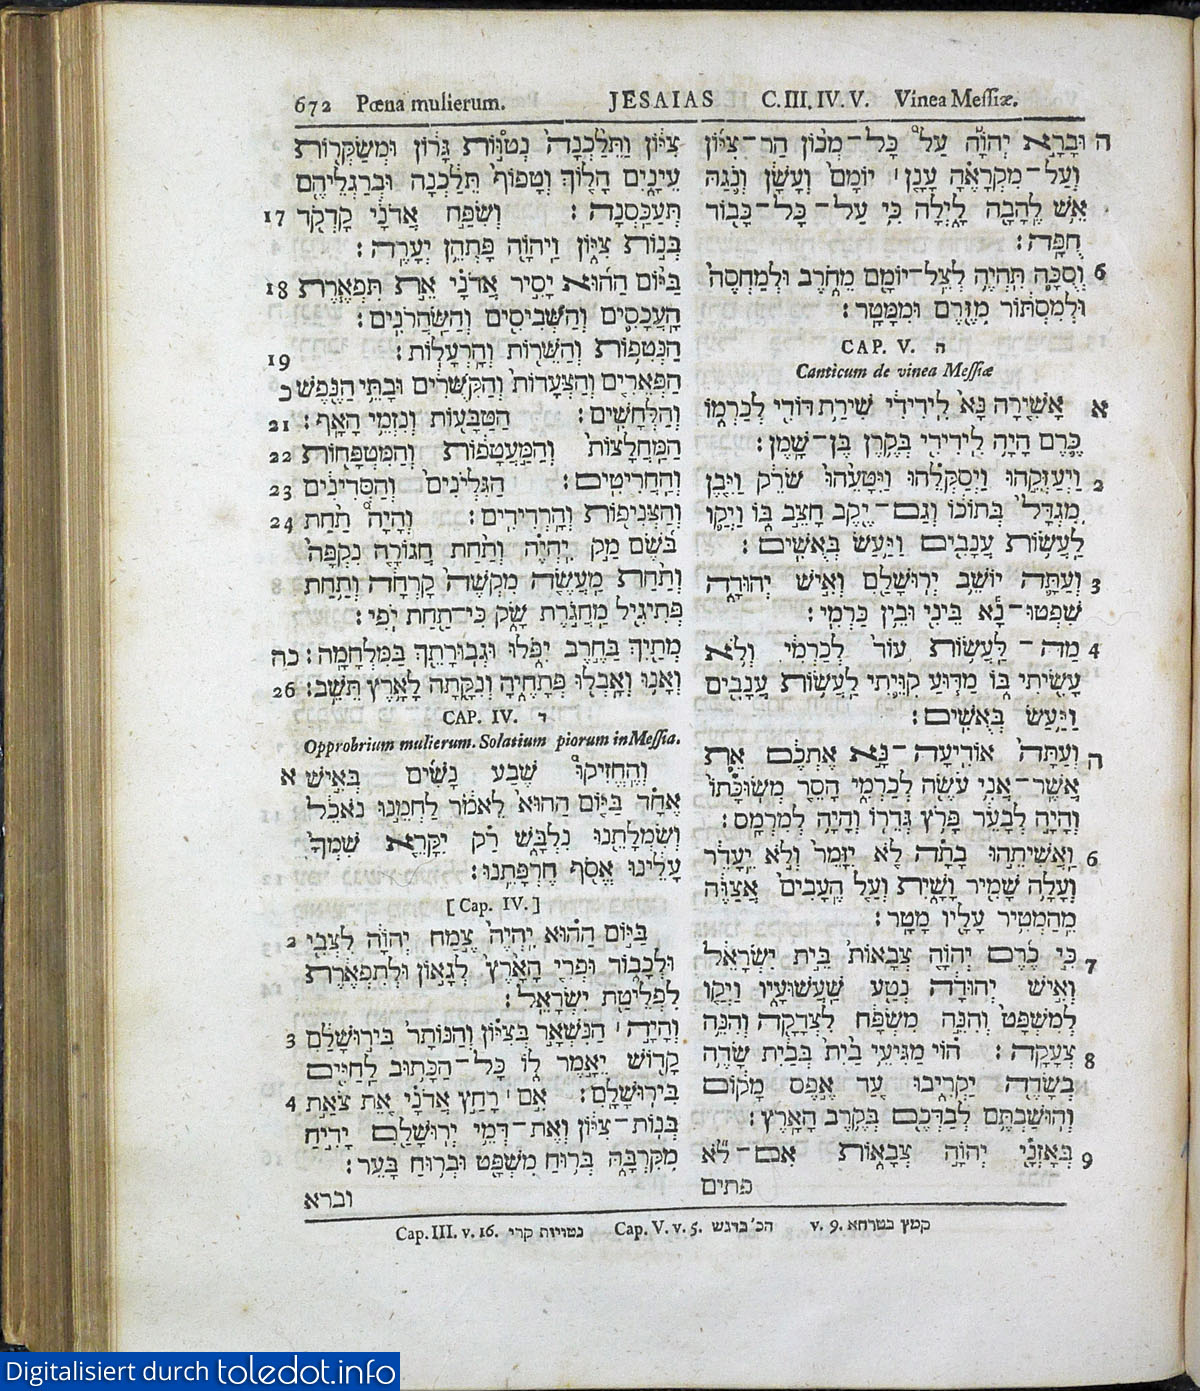 672 Pœna mulierum. JESAIAS C. III. IV. V. Vinea Messiæ.
צִיּוֹן וַתֵּלַכְנָה נְטֻוּוֹת גָּרוֹן וּמְשַׂקְּרוֹת
עֵינָיִם הָלוֹךְ וְטָפוֹף תֵּלַכְנָה וּבְרַגְלֵיהֶם
תְּעַכַּסְנָה׃ וְשִׂפַּח אֲדֹנָי קָדְקֹד 17
בְּנוֹת צִיּוֹן וַיהוָה פָּתְהֵן יְעָרֶה׃
בַּיּוֹם הַהוּא יָסִיר אֲדֹנָי אֵת תִּפְאֶרֶת 18
הָעֲכָסִים וְהַשְּׁבִיסִים וְהַשַּׂהֲרֹנִים׃
הַנְּטִפוֹת וְהַשֵּׁרוֹת וְהָרְעָלוֹת׃ 19
הַפְּאֵרִים וְהַצְּעָדוֹת וְהַקִּשֻּׁרִים וּבָתֵּי הַנֶּפֶשׁ כ
וְהַלְּחָשִׁים׃ הַטַּבָּעוֹת וְנִזְמֵי הָאָף׃ 21
הַמַּחֲלָצוֹת וְהַמַּעֲטָפוֹת וְהַמִּטְפָּחוֹת 22
וְהָחֲרִיטִים׃ הַגִּלְיֹנִים וְהַסְּדִינִים 23
וְהַצְּנִיפוֹת וְהָרְדִידִים׃ וְהָיָה תַחַת 24
בֹּשֶׂם מַק יִהְיֶה וְתַחַת חֲגוֹרָה נִקְפָּה
וְתַחַת מַעֲשֶׂה מִקְשֶׁה קָרְחָה וְתַחַת
פְּתִיגִיל מַחֲגֹרֶת שָׂק כִּי־תַחַת יֹפִי׃
מְתַיִךְ בַּחֶרֶב יִפֹּלוּ וּגְבוּרָתֵךְ בַּמִּלְחָמָה׃ כה
וְאָנוּ וְאָבְלוּ פְּתָחֶיהָ וְנִקָּתָה לָאָרֶץ תֵּשֵׁב׃ 26
CAP. IV. ד
Opprobrium mulierum. Solatium piorum in Messia.
וְהֶחֱזִיקוּ שֶׁבַע נָשִׁים בְּאִישׁ א
אֶחָד בַּיּוֹם הַהוּא לֵאמֹר לַחְמֵנוּ נֹאכֵל
וְשִׂמְלָתֵנוּ נִלְבָּשׁ רַק יִקָּרֵא שִׁמְךָ
עָלֵינוּ אֱסֹף חֶרְפָּתֵנוּ׃
[Cap. IV.]
בַּיּוֹם הַהוּא יִהְיֶה צֶמַח יְהוָה לִצְבִי 2
וּלְכָבוֹד וּפְרִי הָאָרֶץ לְגָאוֹן וּלְתִפְאֶרֶת
לִפְלֵיטַת יִשְׂרָאֵל׃
וְהָיָה׀ הַנִּשְׁאָר בְּצִיּוֹן וְהַנּוֹתָר בִּירוּשָׁלִַם 3
קָדוֹשׁ יֵאָמֶר לוֹ כָּל־הַכָּתוּב לַחַיִּים
בִּירוּשָׁלִָם׃ אִם׀ רָחַץ אֲדֹנָי אֵת צֹאַת 4
בְּנוֹת־צִיּוֹן וְאֶת־דְּמֵי יְרוּשָׁלִַם יָדִיחַ
מִקִּרְבָּהּ בְּרוּחַ מִשְׁפָּט וּבְרוּחַ בָּעֵר׃
וברא
ה וּבָרָא יְהוָה עַל כָּל־מְכוֹן הַר־צִיּוֹן
וְעַל־מִקְרָאֶהָ עָנָן׀ יוֹמָם וְעָשָׁן וְנֹגַהּ
אֵשׁ לֶהָבָה לָיְלָה כִּי עַל־כָּל־כָּבוֹד
חֻפָּה׃
6 וְסֻכָּה תִּהְיֶה לְצֵל־יוֹמָם מֵחֹרֶב וּלְמַחְסֶה
וּלְמִסְתּוֹר מִזֶּרֶם וּמִמָּטָר׃
CAP. V. ה
Canticum de vinea Messiæ
א אָשִׁירָה נָּא לִידִידִי שִׁירַת דּוֹדִי לְכַרְמוֹ
כֶּרֶם הָיָה לִידִידִי בְּקֶרֶן בֶּן־שָׁמֶן׃
2 וַיְעַזְּקֵהוּ וַיְסַקְּלֵהוּ וַיִּטָּעֵהוּ שֹׂרֵק וַיִּבֶן
מִגְדָּל בְּתוֹכוֹ וְגַם־יֶקֶב חָצֵב בּוֹ וַיְקַו
לַעֲשׂוֹת עֲנָבִים וַיַּעַשׂ בְּאֻשִׁים׃
3 וְעַתָּה יוֹשֵׁב יְרוּשָׁלִַם וְאִישׁ יְהוּדָה
שִׁפְטוּ־נָא בֵּינִי וּבֵין כַּרְמִי׃
4 מַה־לַּעֲשׂוֹת עוֹד לְכַרְמִי וְלֹא
עָשִׂיתִי בּוֹ מַדּוּעַ קִוֵּיתִי לַעֲשׂוֹת עֲנָבִים
וַיַּעַשׂ בְּאֻשִׁים׃
ה וְעַתָּה אוֹדִיעָה־נָּא אֶתְכֶם אֵת
אֲשֶׁר־אֲנִי עֹשֶׂה לְכַרְמִי הָסֵר מְשׂוּכָּתוֹ
וְהָיָה לְבָעֵר פָּרֹץ גְּדֵרוֹ וְהָיָה לְמִרְמָס׃
6 וַאֲשִׁיתֵהוּ בָתָה לֹא יִזָּמֵר וְלֹא יֵעָדֵר
וְעָלָה שָׁמִיר וָשָׁיִת וְעַל הֶעָבִים אֲצַוֶּה
מֵהַמְטִיר עָלָיו מָטָר׃
7 כִּי כֶרֶם יְהוָה צְבָאוֹת בֵּית יִשְׂרָאֵל
וְאִישׁ יְהוּדָה נְטַע שַׁעֲשׁוּעָיו וַיְקַו
לְמִשְׁפָּט וְהִנֵּה מִשְׂפָּח לִצְדָקָה וְהִנֵּה
8 צְעָקָה׃ הוֹי מַגִּיעֵי בַיִת בְּבַיִת שָׂדֶה
בְשָׂדֶה יַקְרִיבוּ עַד אֶפֶס מָקוֹם
וְהוּשַׁבְתֶּם לְבַדְּכֶם בְּקֶרֶב הָאָרֶץ׃
9 בְּאָזְנָי יְהוָה צְבָאוֹת אִם־לֹא
בתים
Cap. III. v. 16. נטויות קרי Cap. V. v. 5. הכ׳ בדגש v. 9. קמץ בטרחא
Digitalisiert durch toledot.info